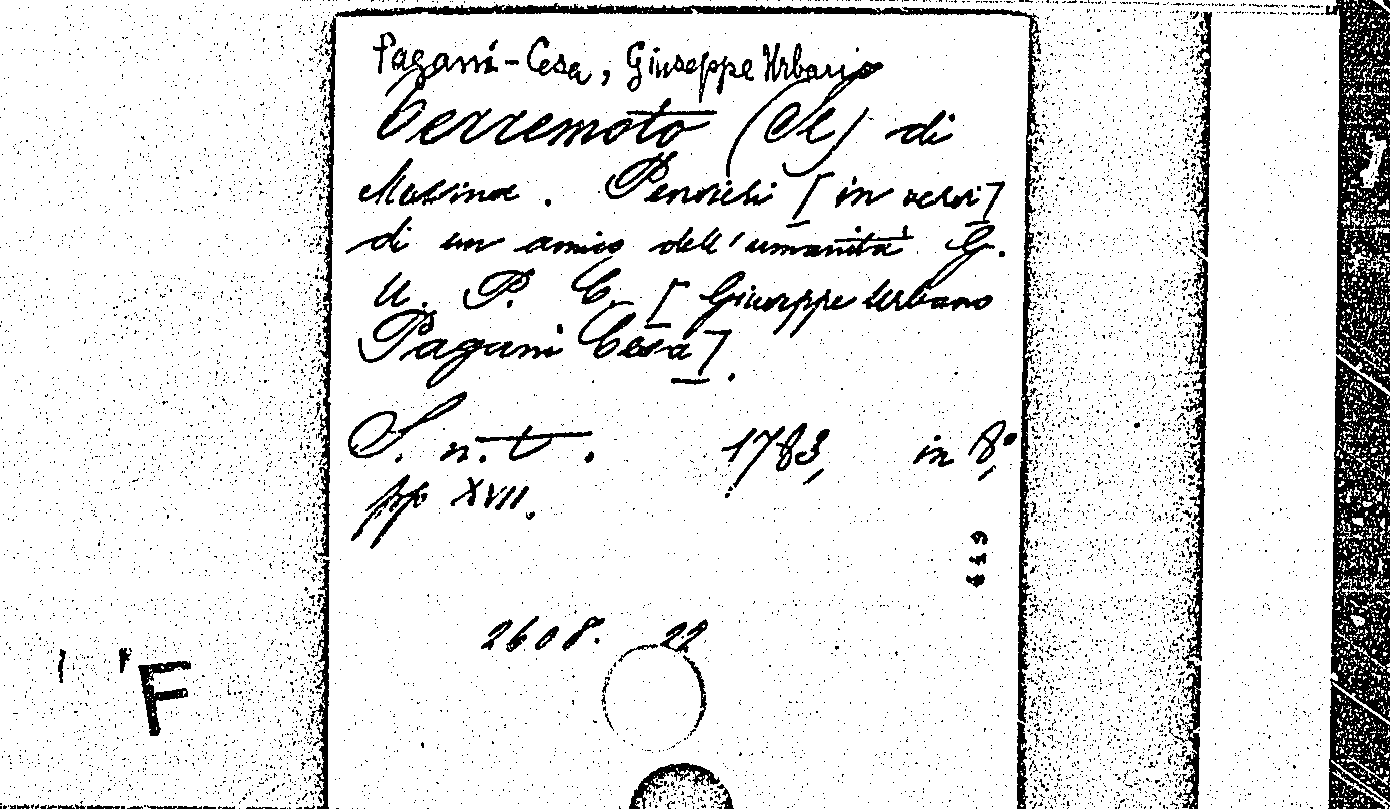 Pagani-Cesa, Giuseppe Urbano
Terremoto (Il) di
Messina. Pensieri [in versi]
di un amico dell'umanità G.
U. P. C. [Giuseppe Urbano
Pagani Cesa].
S. n. t. 1783, in 8°,
pp XVII.
2608. 22
F